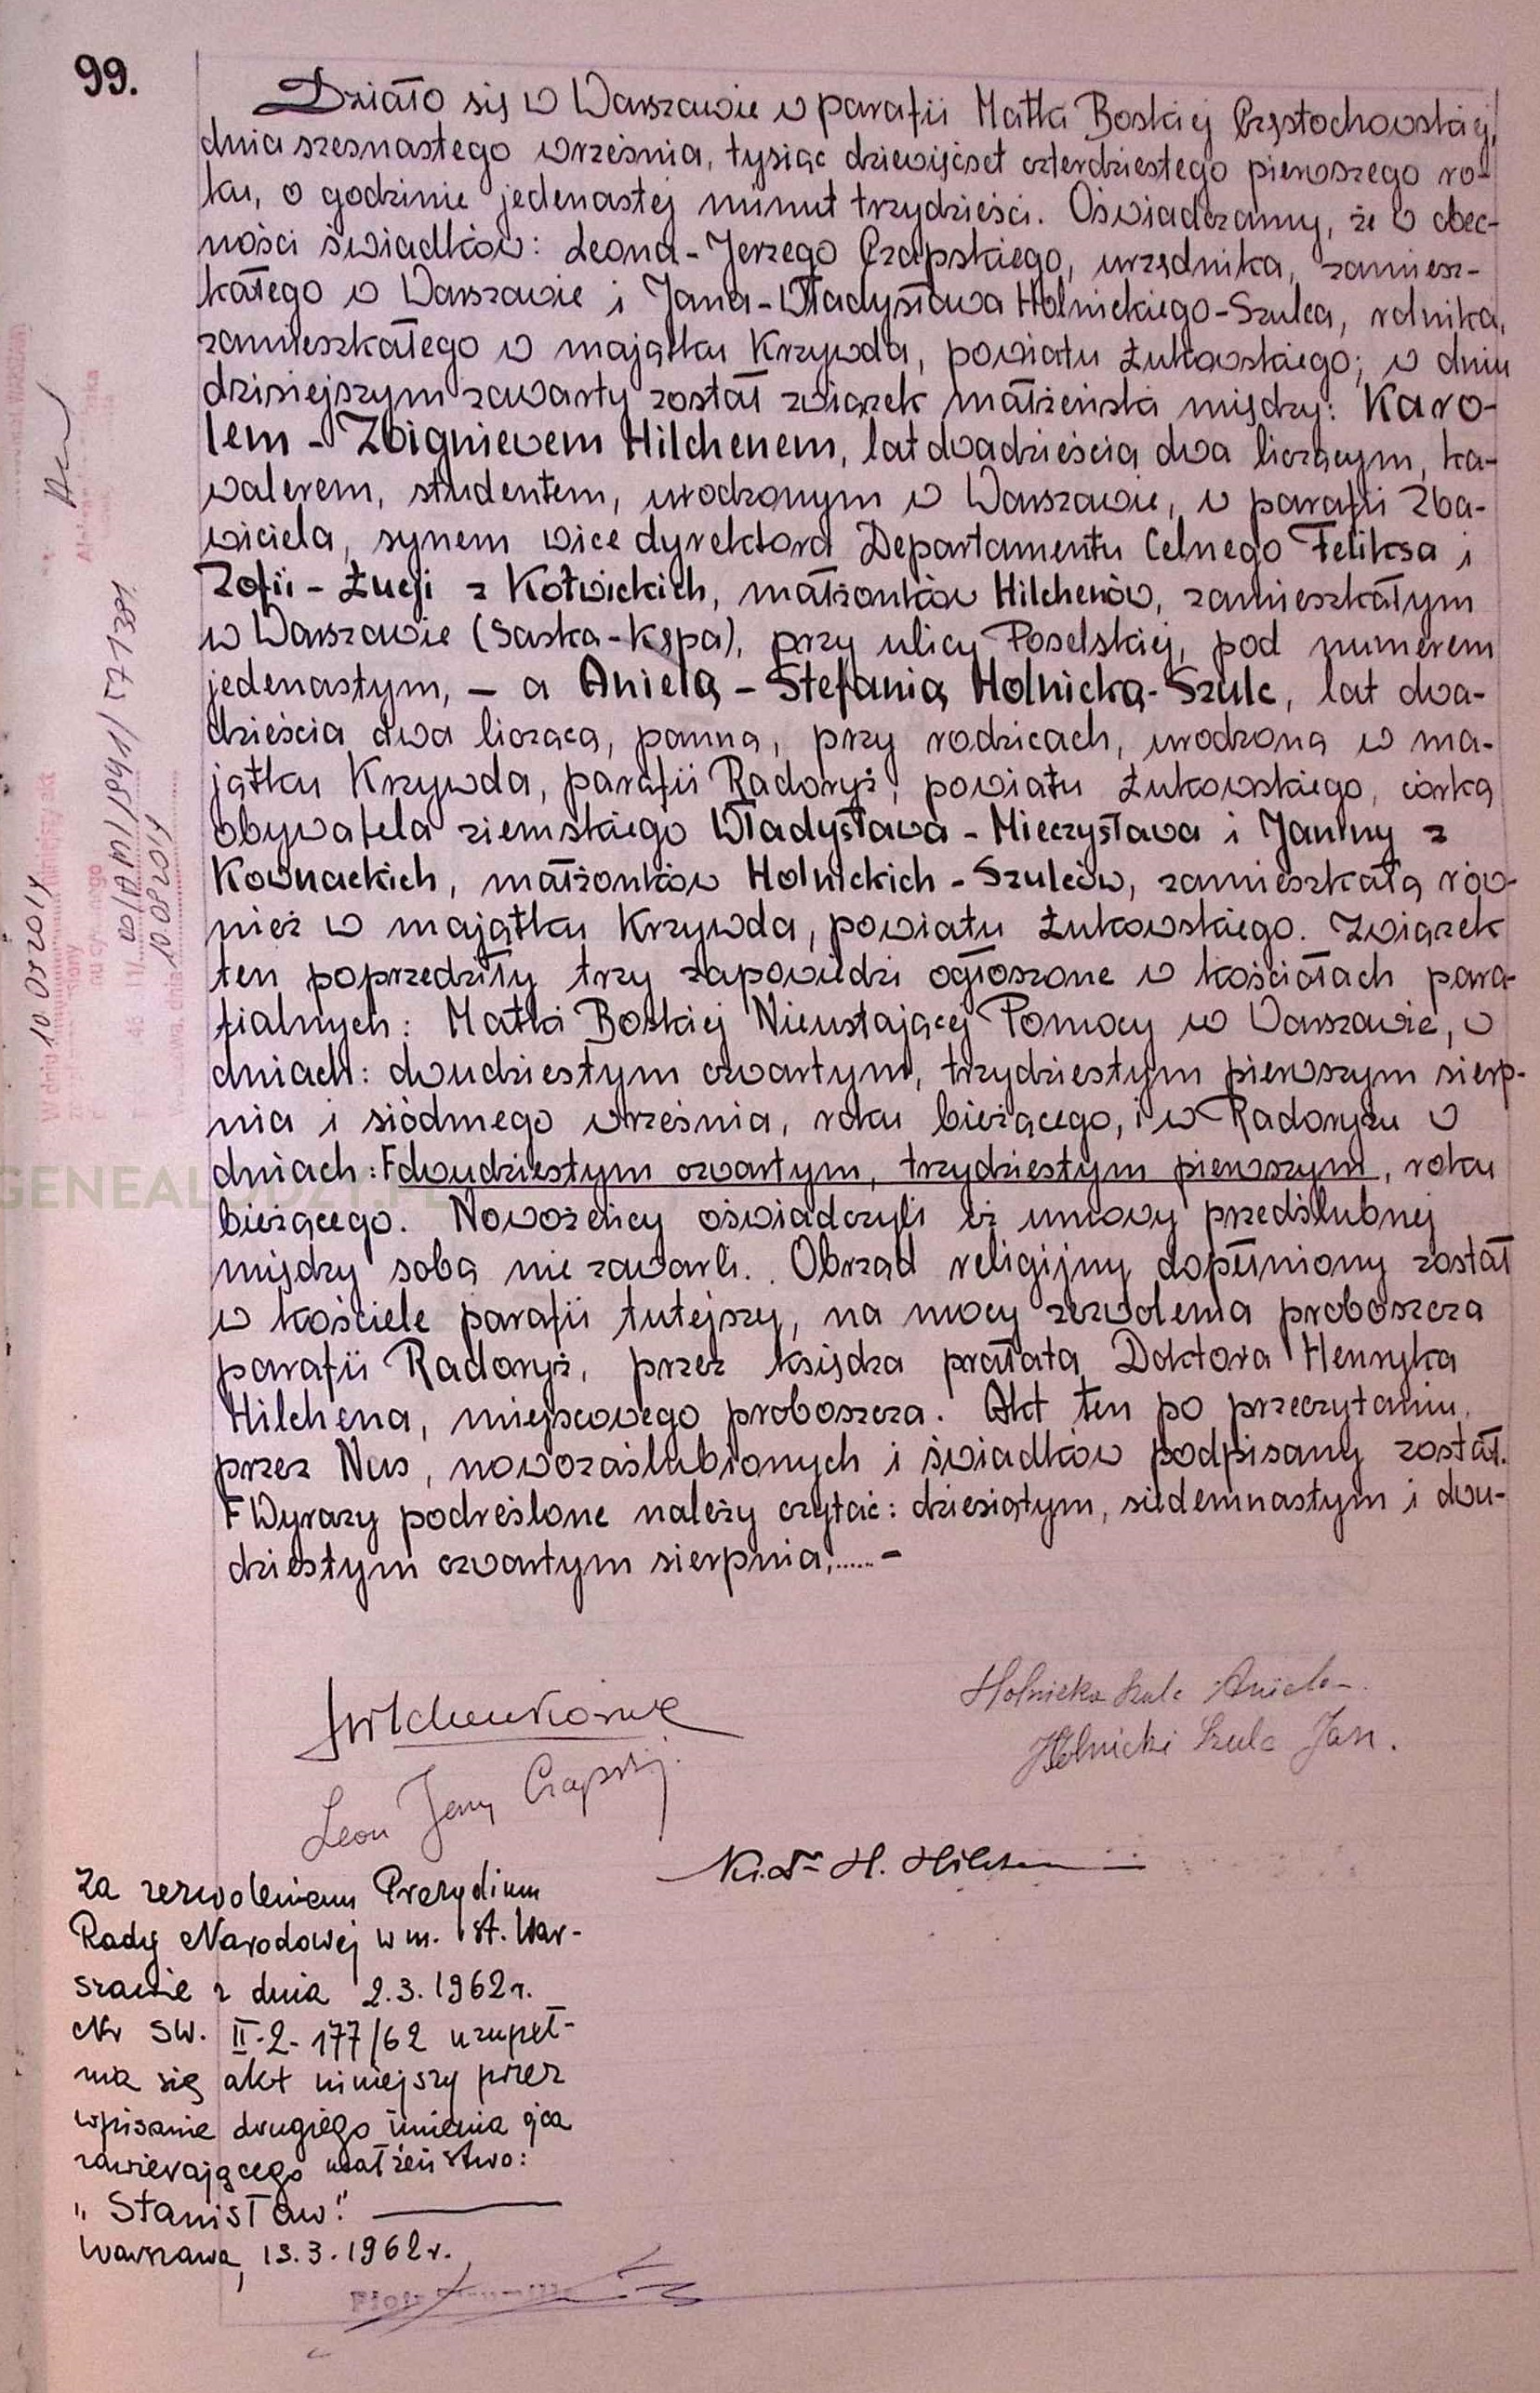 99.
Działo się w Warszawie w parafii Matki Boskiej Częstochowskiej,
dnia szesnastego września, tysiąc dziewięćset czterdziestego pierwszego ro-
ku, o godzinie jedenastej minut trzydzieści. Oświadczamy, że w obec-
ności świadków: Leona-Jerzego Czapskiego, urzędnika, zamiesz-
kałego w Warszawie i Jana-Władysława Holnickiego-Szulca, rolnika,
zamieszkałego w majątku Krzywda, powiatu Łukowskiego; w dniu
dzisiejszym zawarty został związek małżeński między: Karo-
lem - Zbigniewem Hilchenem, lat dwadzieścia dwa liczącym, ka-
walerem, studentem, urodzonym w Warszawie, w parafii Zba-
wiciela, synem vice dyrektora Departamentu Celnego Feliksa i
Zofii - Łucji z Kotwickich, małżonków Hilchenów, zamieszkałym
w Warszawie (Saska-Kępa), przy ulicy Poselskiej, pod numerem
jedenastym, - a Anielą - Stefanią Holnicką-Szulc, lat dwa-
dzieścia dwa liczącą, panną, przy rodzicach, urodzoną w ma-
jątku Krzywda, parafii Radoryż, powiatu Łukowskiego, córką
obywatela ziemskiego Władysława - Mieczysława i Janiny z
Kownackich, małżonków Holnickich - Szulców, zamieszkałą rów-
nież w majątku Krzywda, powiatu Łukowskiego. Związek
ten poprzedziły trzy zapowiedzi ogłoszone w kościołach para-
fialnych: Matki Boskiej Nieustającej Pomocy w Warszawie, w
dniach: dwudziestym czwartym, trzydziestym pierwszym sierp-
nia i siódmego września, roku bieżącego, i w Radoryżu w
dniach: F dwudziestym czwartym, trzydziestym pierwszym, roku
bieżącego. Nowożeńcy oświadczyli iż umowy przedślubnej
między sobą nie zawarli. Obrząd religijny dopełniony został
w kościele parafii tutejszej, na mocy zezwolenia proboszcza
parafii Radoryż, przez księdza prałata Doktora Henryka
Hilchena, miejscowego proboszcza. Akt ten po przeczytaniu,
przez Nas, nowozaślubionych i świadków podpisany został.
F Wyrazy podreślone należy czytać: dziesiątym, siedemnastym i dwu-
dziestym czwartym sierpnia,...... -
Holnicka Szulc Aniela
Holnicki Szulc Jan.
Leon Jerzy Czapski
H. Hilchen
Za zezwoleniem Prezydium
Rady Narodowej w m. st. War-
szawie z dnia 2.3.1962 r.
Nr SW. II-2-177/62 uzupeł-
nia się akt niniejszy przez
wpisanie drugiego imienia ojca
zawierającego małżeństwo:
"Stanisław."
Warszawa, 13.3.1962 r.
10 08 2014
10 08 2014